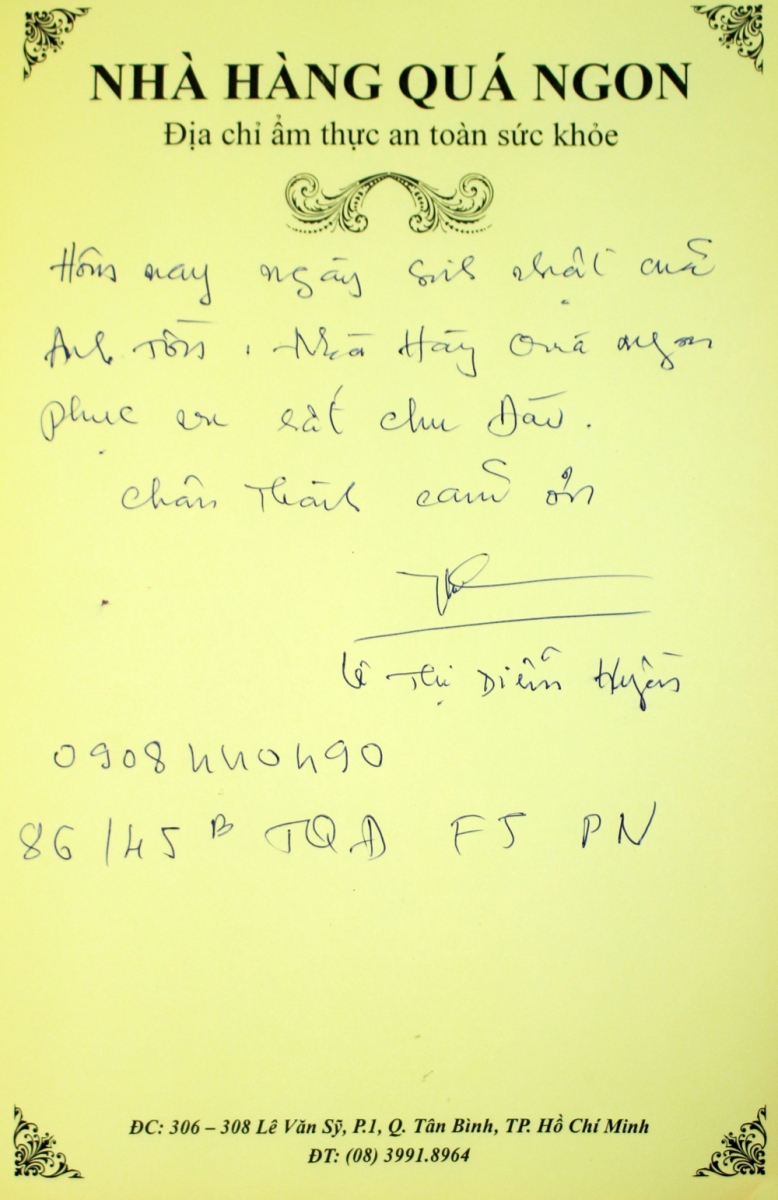 NHÀ HÀNG QUÁ NGON
Địa chỉ ẩm thực an toàn sức khỏe
Hôm nay ngày sinh nhật của
Anh . Nhà Hàng Quá ngon
phục vụ rất chu Đáo.
chân Thành cảm ơn
Lê Thị Diễm
0908440490
86/45B TQD F5 PN
ĐC: 306 – 308 Lê Văn Sỹ, P.1, Q. Tân Bình, TP. Hồ Chí Minh
ĐT: (08) 3991.8964